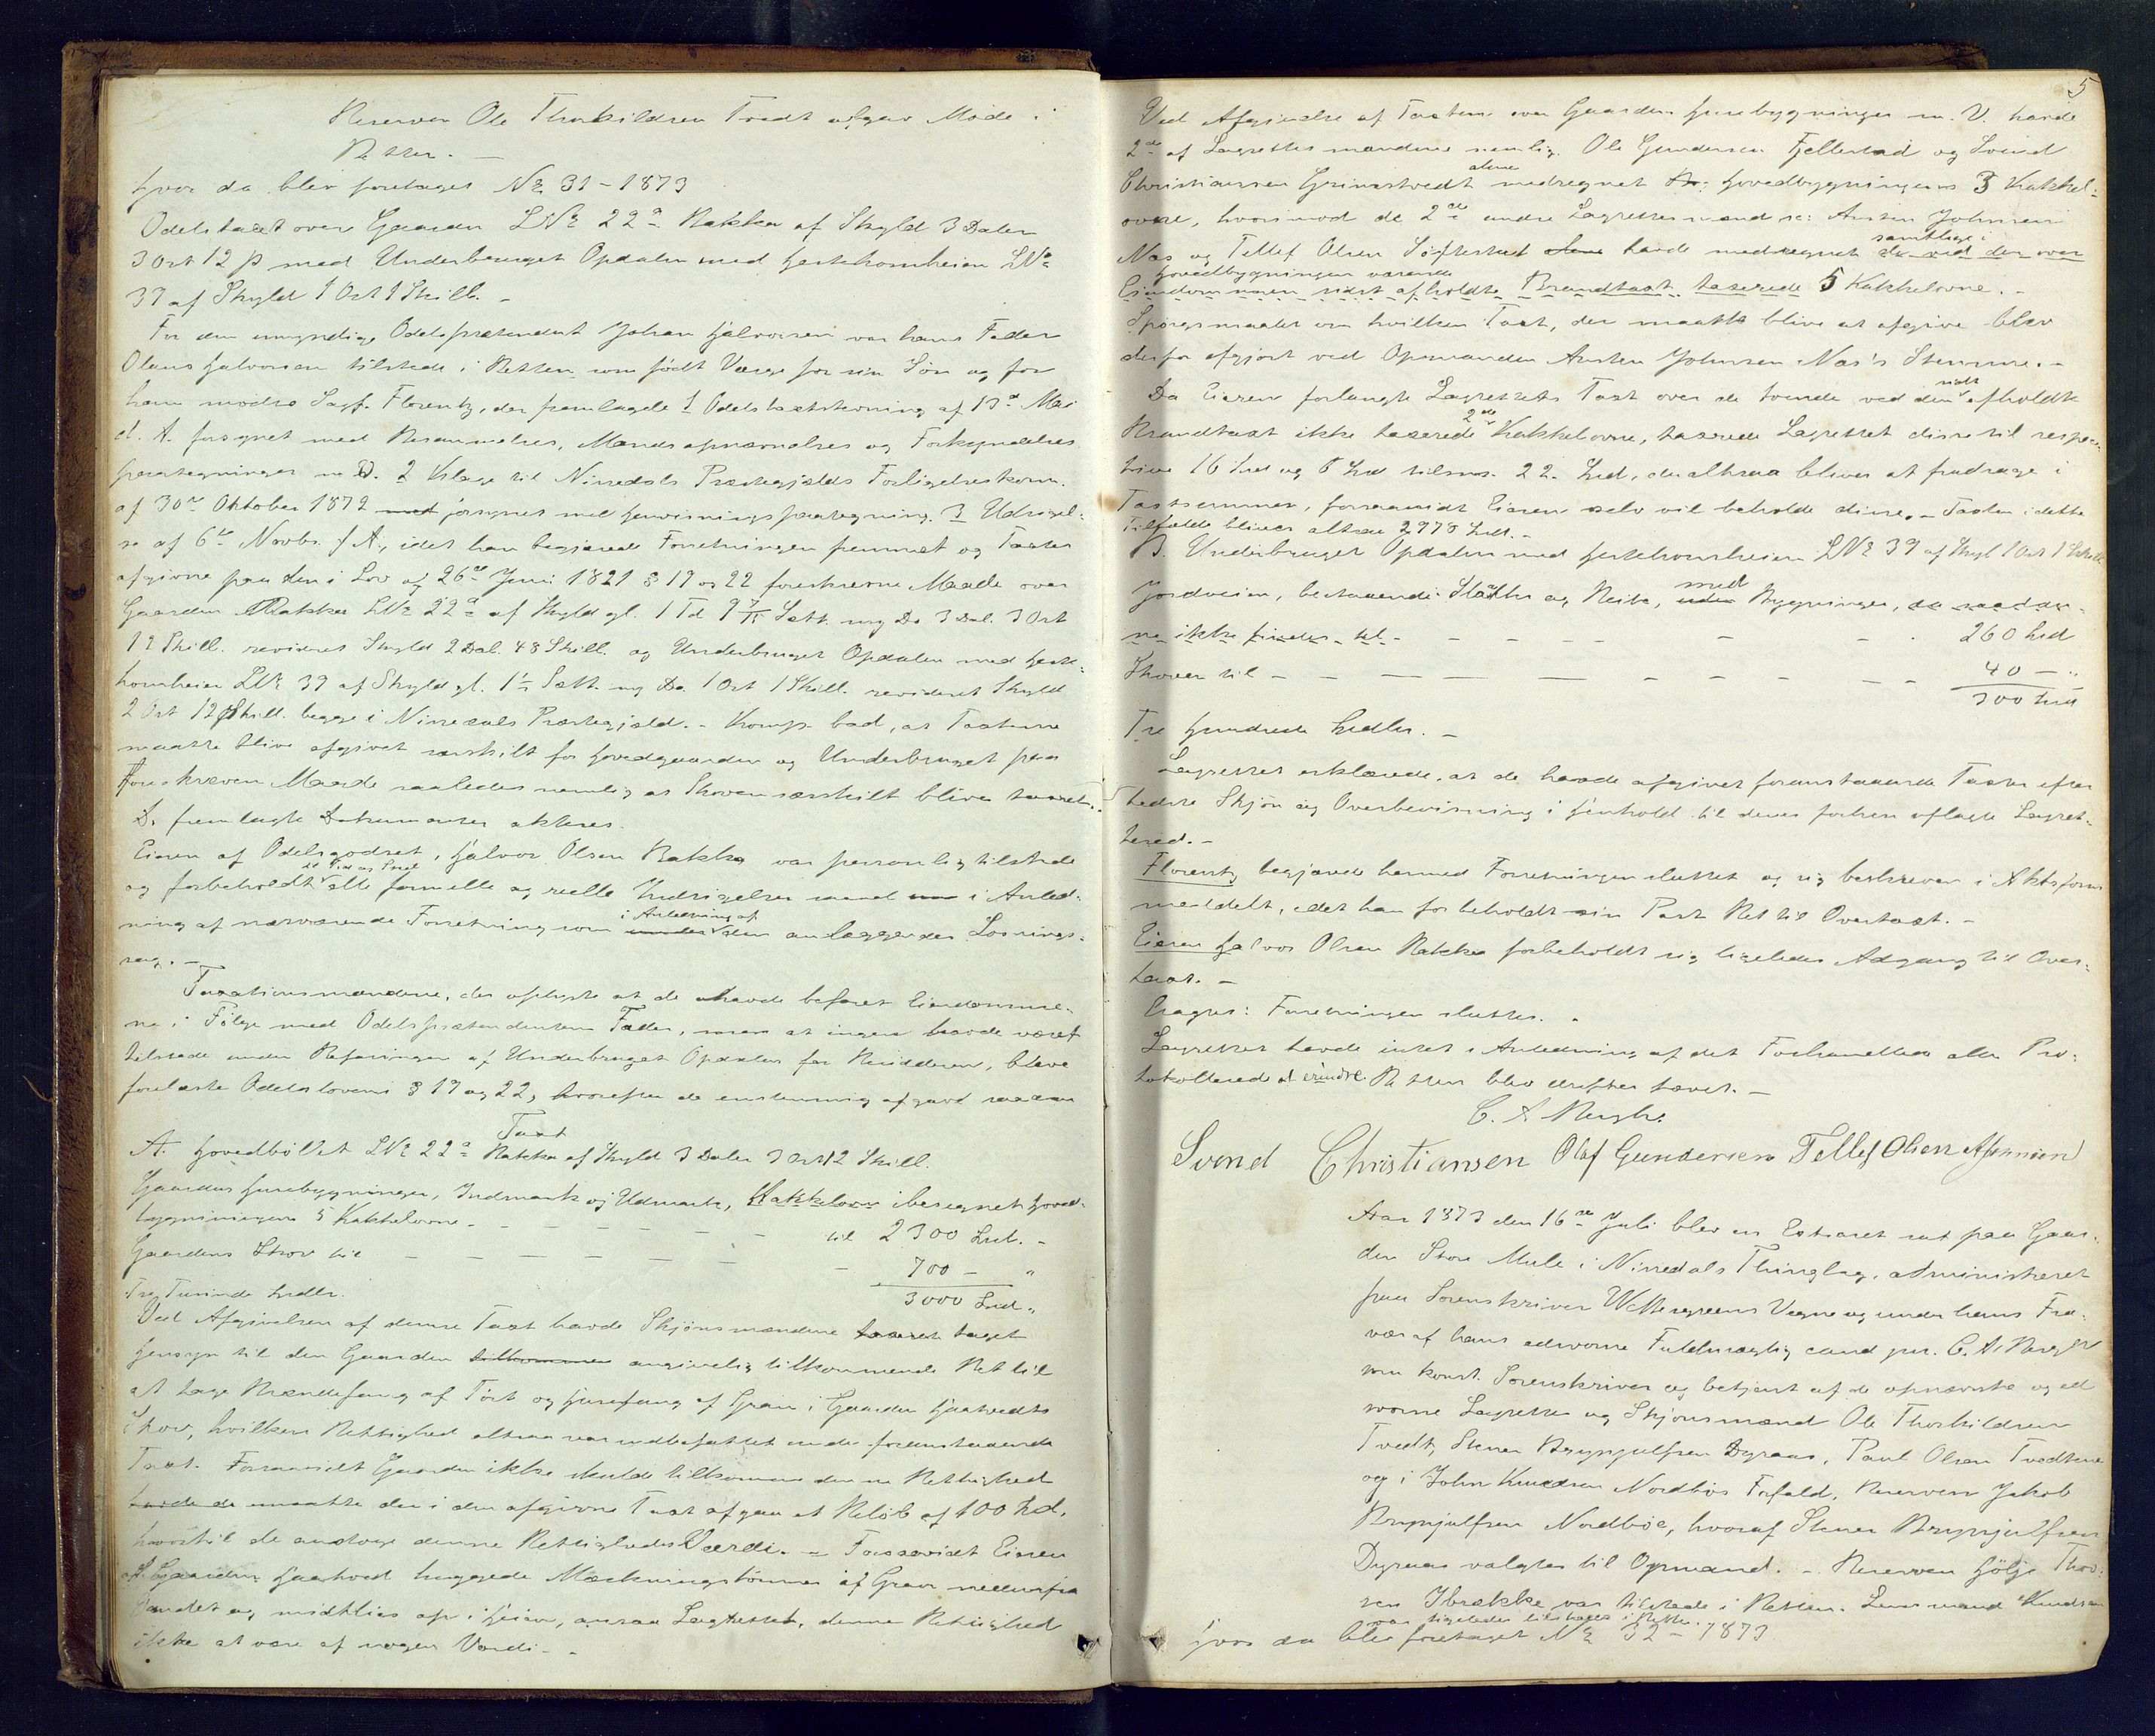 Reserven Ole Thorkildsen Tvedt afgav Møde i
Retten. —
hvor da blev foretaget No 31 - 1873
Odelstaxt over Gaarden LNo 22a Rakka af Skyld 3 Daler
3 Ort 12 ß med Underbruget Opdalen med Hestehomheien LNo
39 af Skyld 1 Ort 1 Skill. -
For den umyndige Odelsprætendent Johan Halvorsen var hans Fader
Olaus Halvorsen tilstede i Retten som født Værge for sin Søn og for
ham mødte Sagf. Florentz, der fremlagde 1 Odelstaxtstævning af 13de Mai
d. A. forsynet med Berammelses, Mandsopnævnelses og Forkyndelses
paategninger m. V. 2 Klage til Nissedals Præstegjælds Forligelseskom.
af 30te Oktober 1872 med forsynet med Henvisningspaategning. 3 Udskrift
af 6te Novbr. f. A., idet han begjærede Forretningen fremmet og Taxten
afgivne paa den i Lov af 26de Juni 1821 § 19 og 22 foreskrevne Maade over
Gaarden Rakka LNo 22a af Skyld gl. 1 Td Sætt. ny Do 3 Dal. 3 Ort
12 Skill. revideret Skyld 2 Dal. 48 Skill. og Underbruget Opdalen med Heste-
homheien LNo 39 af Skyld gl. Sætt. ny Do. 1 Ort 1 Skill. revideret Skyld
2 Ort 12 Skill. begge i Nissedals Præstegjæld. - Komp. bad, at Taxterne
maatte blive afgivet særskilt for Hovedgaarden og Underbruget paa
foreskreven Maade saaledes nemlig at Skoven særskilt bliver taxeret.
D. fremlagte Dokumenter akteres.
Eieren af Odelsgodset, Halvor Olsen Rakka var personlig tilstede
og forbeholdt alle formelle og reelle Indsigelser saavel i Anled-
ning af nærværende Forretning som under i Anledning af den anlæggendes Løsnings-
sag. —
Taxationsmændene, der oplyste at de havde befaret Eiendomme-
ne i Følge med Odelsprætendentens Fader, men at ingen havde været
tilstede under Befaringen af Underbruget Opdalen for Besidderen, bleve
forelæste Odelslovens § 19 og 22, hvorefter de enstemmig afgave saadan
Taxt
A. Hovedbøllet LNo 22a Rakka af Skyld 3 Daler 3 Ort 12 Skill.
Gaardens Husebygninger, Indmark og Udmark, Kakkelovn iberegnet Hoved-
bygningens 5 Kakkelovne - til 2300 Spd. -
Gaardens Skov til 700 — "
Tre Tusinde Spdlr. 3000 Spd. "
Ved Afgivelsen af denne Taxt havde Skjønsmændene taxeret taget
Hensyn til den Gaarden tilkommen angivelig tilkommende Ret til
at tage Brændefang af Tørt og Husefang af Gran i Gaarden Haatvedts
Skov, hvilken Rettighed altsaa var indbefattet under foranstaaende
Taxt. Forsaavidt Gaarden ikke skulde tilkomme denne Rettighed
havde de maatte der i den afgivne Taxt afgaa et Beløb af 100 Spd.
hvortil de ansloge denne Rettigheds Værdi. — Forsaavidt Eieren
af Gaarden Haatvedt huggede Mærkningstømmer af Gran nedenfra
Vandet og midtlies op i Heien, ansaa Lagrettet, denne Rettighed
ikke at være af nogen Værdi. -
5
Ved Afgivelse af Taxten over Gaardens Husebygninger m. V. havde
2de af Lagrettesmændene nemlig Ole Gundersen Fjellestad og Svend
Christiansen Grimstvedt alene medregnet Hovedbygningens 3 Kakkel-
ovne, hvorimod de 2de andre Lagrettesmænd nl: Austen Johnsen
Næs og Tellef Olsen Søftestad havde medregnet de ved den over samtlige i
Eiendommen sidst afholdte Brandtaxt taxerede Hovedbygningen værende 5 Kakkelovne. -
Spørgsmaalet om hvilken Taxt, der maatte blive at afgive blev
derfor afgjort ved Opmanden Austen Johnsen Næs's Stemme. -
Da Eieren forlangte Lagrettets Taxt over de tvende ved den sidst afholdte
Brandtaxt ikke taxerede 2de Kakkelovne, taxerede Lagrettet disse til respec-
tive 16 Spd og 6 Spd tilsms. 22. Spd, der altsaa bliver at fradrage i
Taxtsummen, forsaavidt Eieren selv vil beholde disse. - Taxten i dette
Tilfælde bliver altsaa 2978 Spd. -
B. Underbruget Opdalen med Hestehomheien LNo 39 af Skyld 1 Ort 1 Skill
Jordveien, bestaaende Slaatter og Beite, uden med Bygninger, da saadan-
ne ikke findes til - 260 Spd
Skoven til - 40 — "
300 Spd
Tre Hundrede Spdlr. -
Lagrettet erklærede, at de havde afgivet foranstaaende Taxter efter
bedste Skjøn og Overbevisning i Henhold til deres forhen aflagte Lagret-
tesed. -
Florentz begjærede hermed Forretningen sluttet og sig beskreven i Aktsform
meddelt, idet han forbeholdt sin Part Ret til Overtaxt. -
Eieren Halvor Olsen Rakka forbeholdt sig ligeledes Adgang til Over-
taxt. -
Eragtes: Forretningen sluttes. .
Lagrettet havde intet i Anledning af det Forhandlede eller Pro-
tokollerede at erindre. Retten blev derefter hævet. -
C. A. Bergh.
Svend Christiansen Olef Gundersen Tellef Olsen A Johnsen
Aar 1873 den 16de Juli blev en Extraret sat paa Gaar-
den Store Mule i Nissedals Thinglag, administreret
paa Sorenskriver Wettergreens Vegne og under hans Fra-
vær af hans edsvorne Fuldmægtig cand jur. C. A. Bergh
som konst. Sorenskriver og betjent af de opnævnte og ed
svorne Lagrettes og Skjønsmænd Ole Thorkildsen
Tvedt, Stener Brynjulfsen Dyraas, Paul Olsen Tvedtene
og i John Knudsen Nordbøs Forfald, Reserven Jakob
Brynjulfsen Nordbøe, hvoraf Stener Brynjulfsen
Dyraas valgtes til Opmand. - Reserven Hølje Thor-
sen Ibrekke var tilstede i Retten. Lensmand Knudsen
var ligeledes tilstede i Retten.
hvor da blev foretaget No 32 - 1873